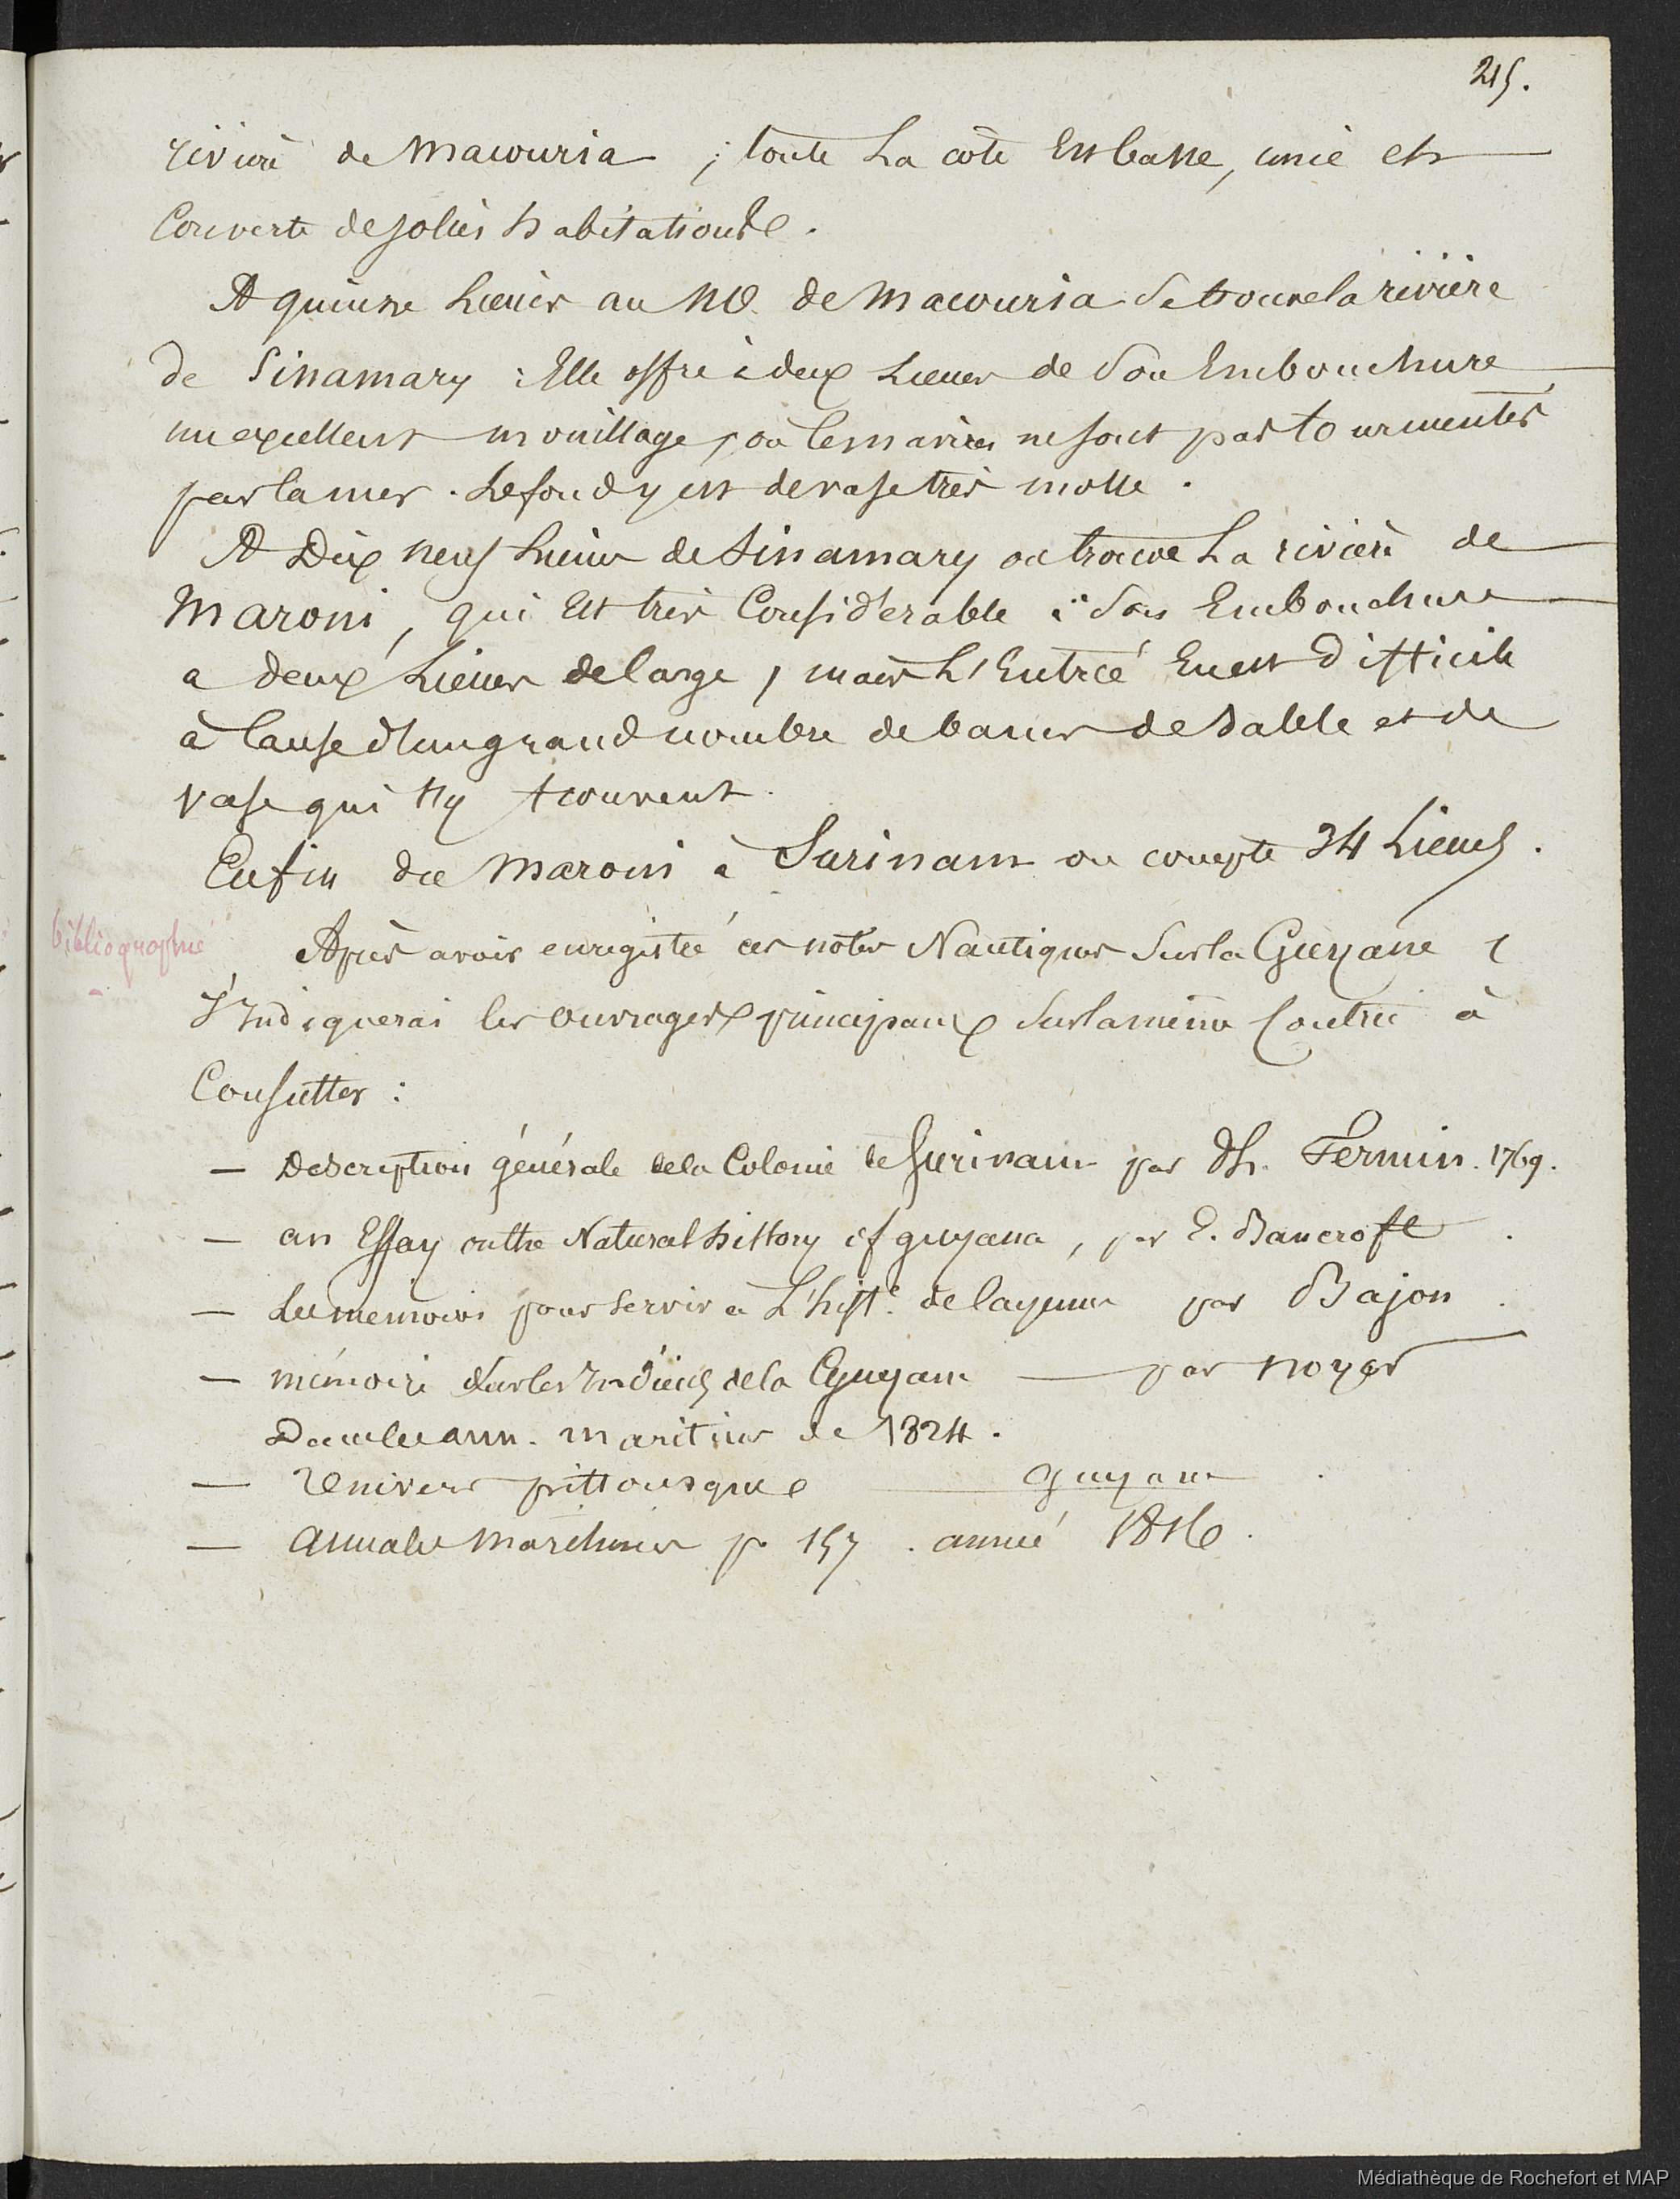 215.
rivière de Macouria ; toute La côte Est basse, unie et
Couverte de jolies habitations.
A quinze Lieües au NO. de Macouria se trouve la rivière
de Sinamary : Elle offre à deux Lieües de Son Embouchure
un excellent mouillage, où les navires ne sont pas tourmentés
par la mer. Le fond y est de vase très molle.
A Dix neuf Lieües de Sinamary on trouve La rivière de
Maroni, qui Est très Considérable : Son Embouchure
a deux Lieües de large, mais L'Entrée En est Difficile
à Cause d'un grand nombre de bancs de Sable et de
vase qui s'y trouvent.
Enfin du Maroni à Surinam on compte 34 Lieues.
bibliographie
Après avoir enregistré ces notes Nautiques Sur la Guyane,
J'Indiquerai les Ouvrages principaux Sur la même Contrée à
Consulter :
— Description générale de la Colonie de Surinam par Ph. Fermin. 1769.
— an Essay on the Natural history of guyana, par E. Bancroft.
— Les memoires pour Servir a L'histe. de Cayenne par Bajon.
— mémoire Sur les Indiens de la Guyane — par Noyer
Dans les ann. maritimes de 1824.
— L'Univers pittoresque — Guyane.
— Annales Maritimes p. 157. année 1816.
Médiathèque de Rochefort et MAP